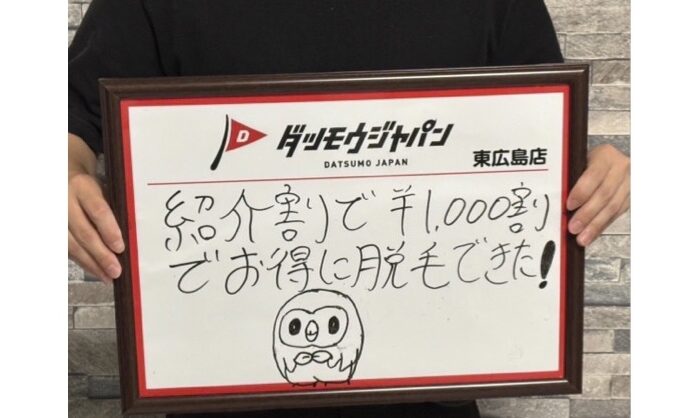 D
ダツモウジャパン
DATSUMO JAPAN
東広島店
紹介割りで ¥1,000割
でお得に脱毛できた!